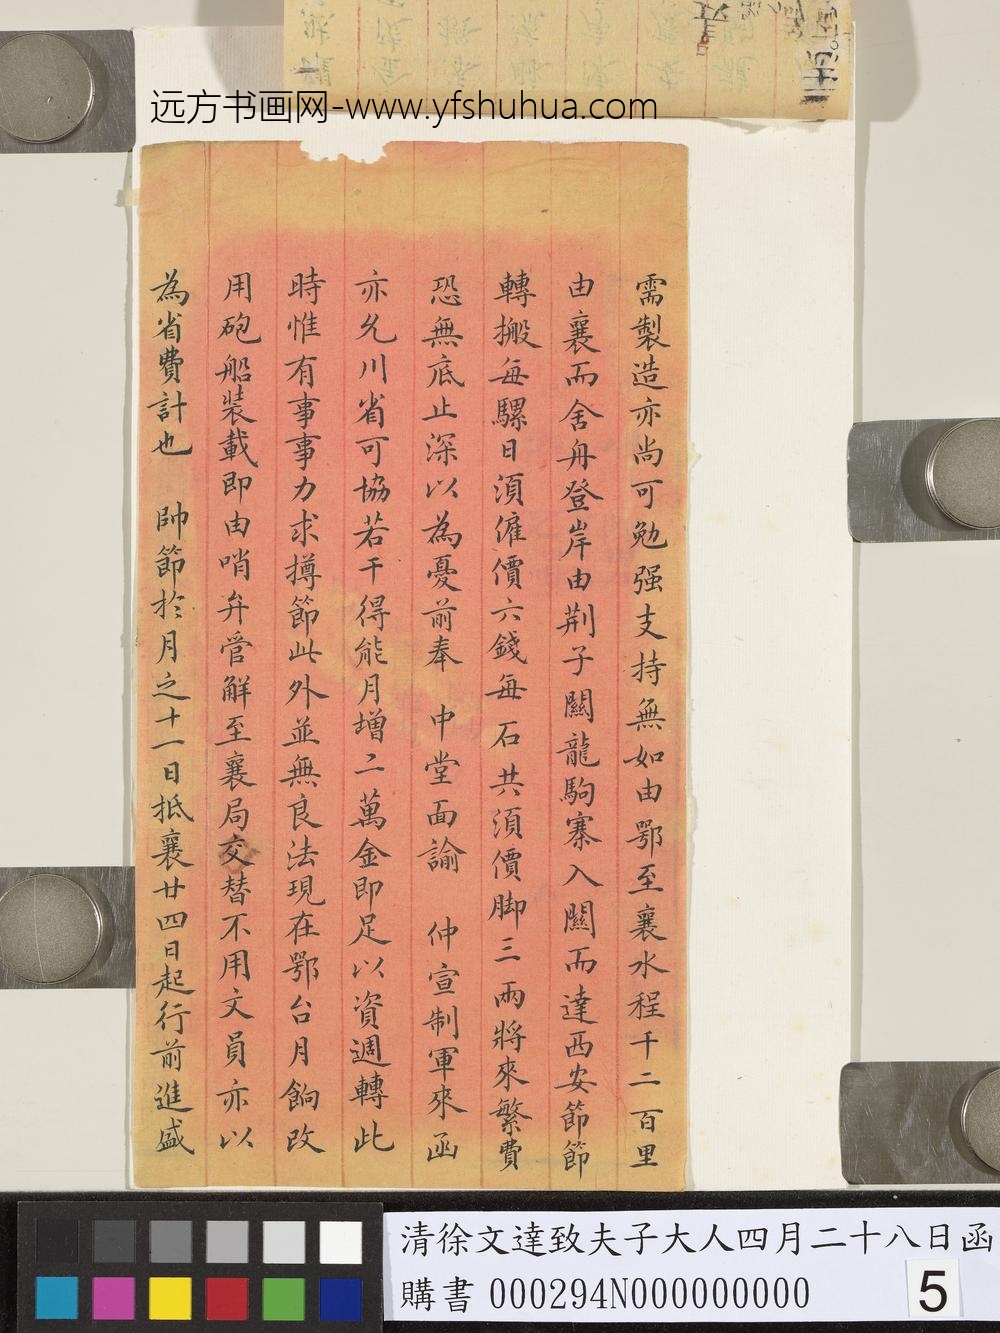 远方书画网-www.yfshuhua.com
需製造亦尚可勉强支持無如由鄂至襄水程千二百里
由襄而舍舟登岸由荆子關龍駒寨入關而達西安節節
轉搬每騾日須雇價六錢每石共須價脚三兩將來繁費
恐無底止深以為憂前奉 中堂面諭 仲宣制軍來函
亦允川省可協若干得能月增二萬金即足以資週轉此
時惟有事事力求撙節此外並無良法現在鄂台月餉改
用砲船裝載即由哨弁管解至襄局交替不用文員亦以
為省費計也 帥節於月之十一日抵襄廿四日起行前進盛
清徐文達致夫子大人四月二十八日函
購書 000294N000000000
5